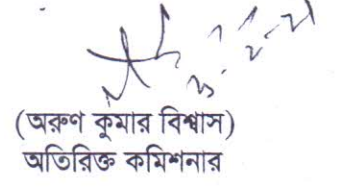 (অরুণ কুমার বিশ্বাস)
অতিরিক্ত কমিশনার